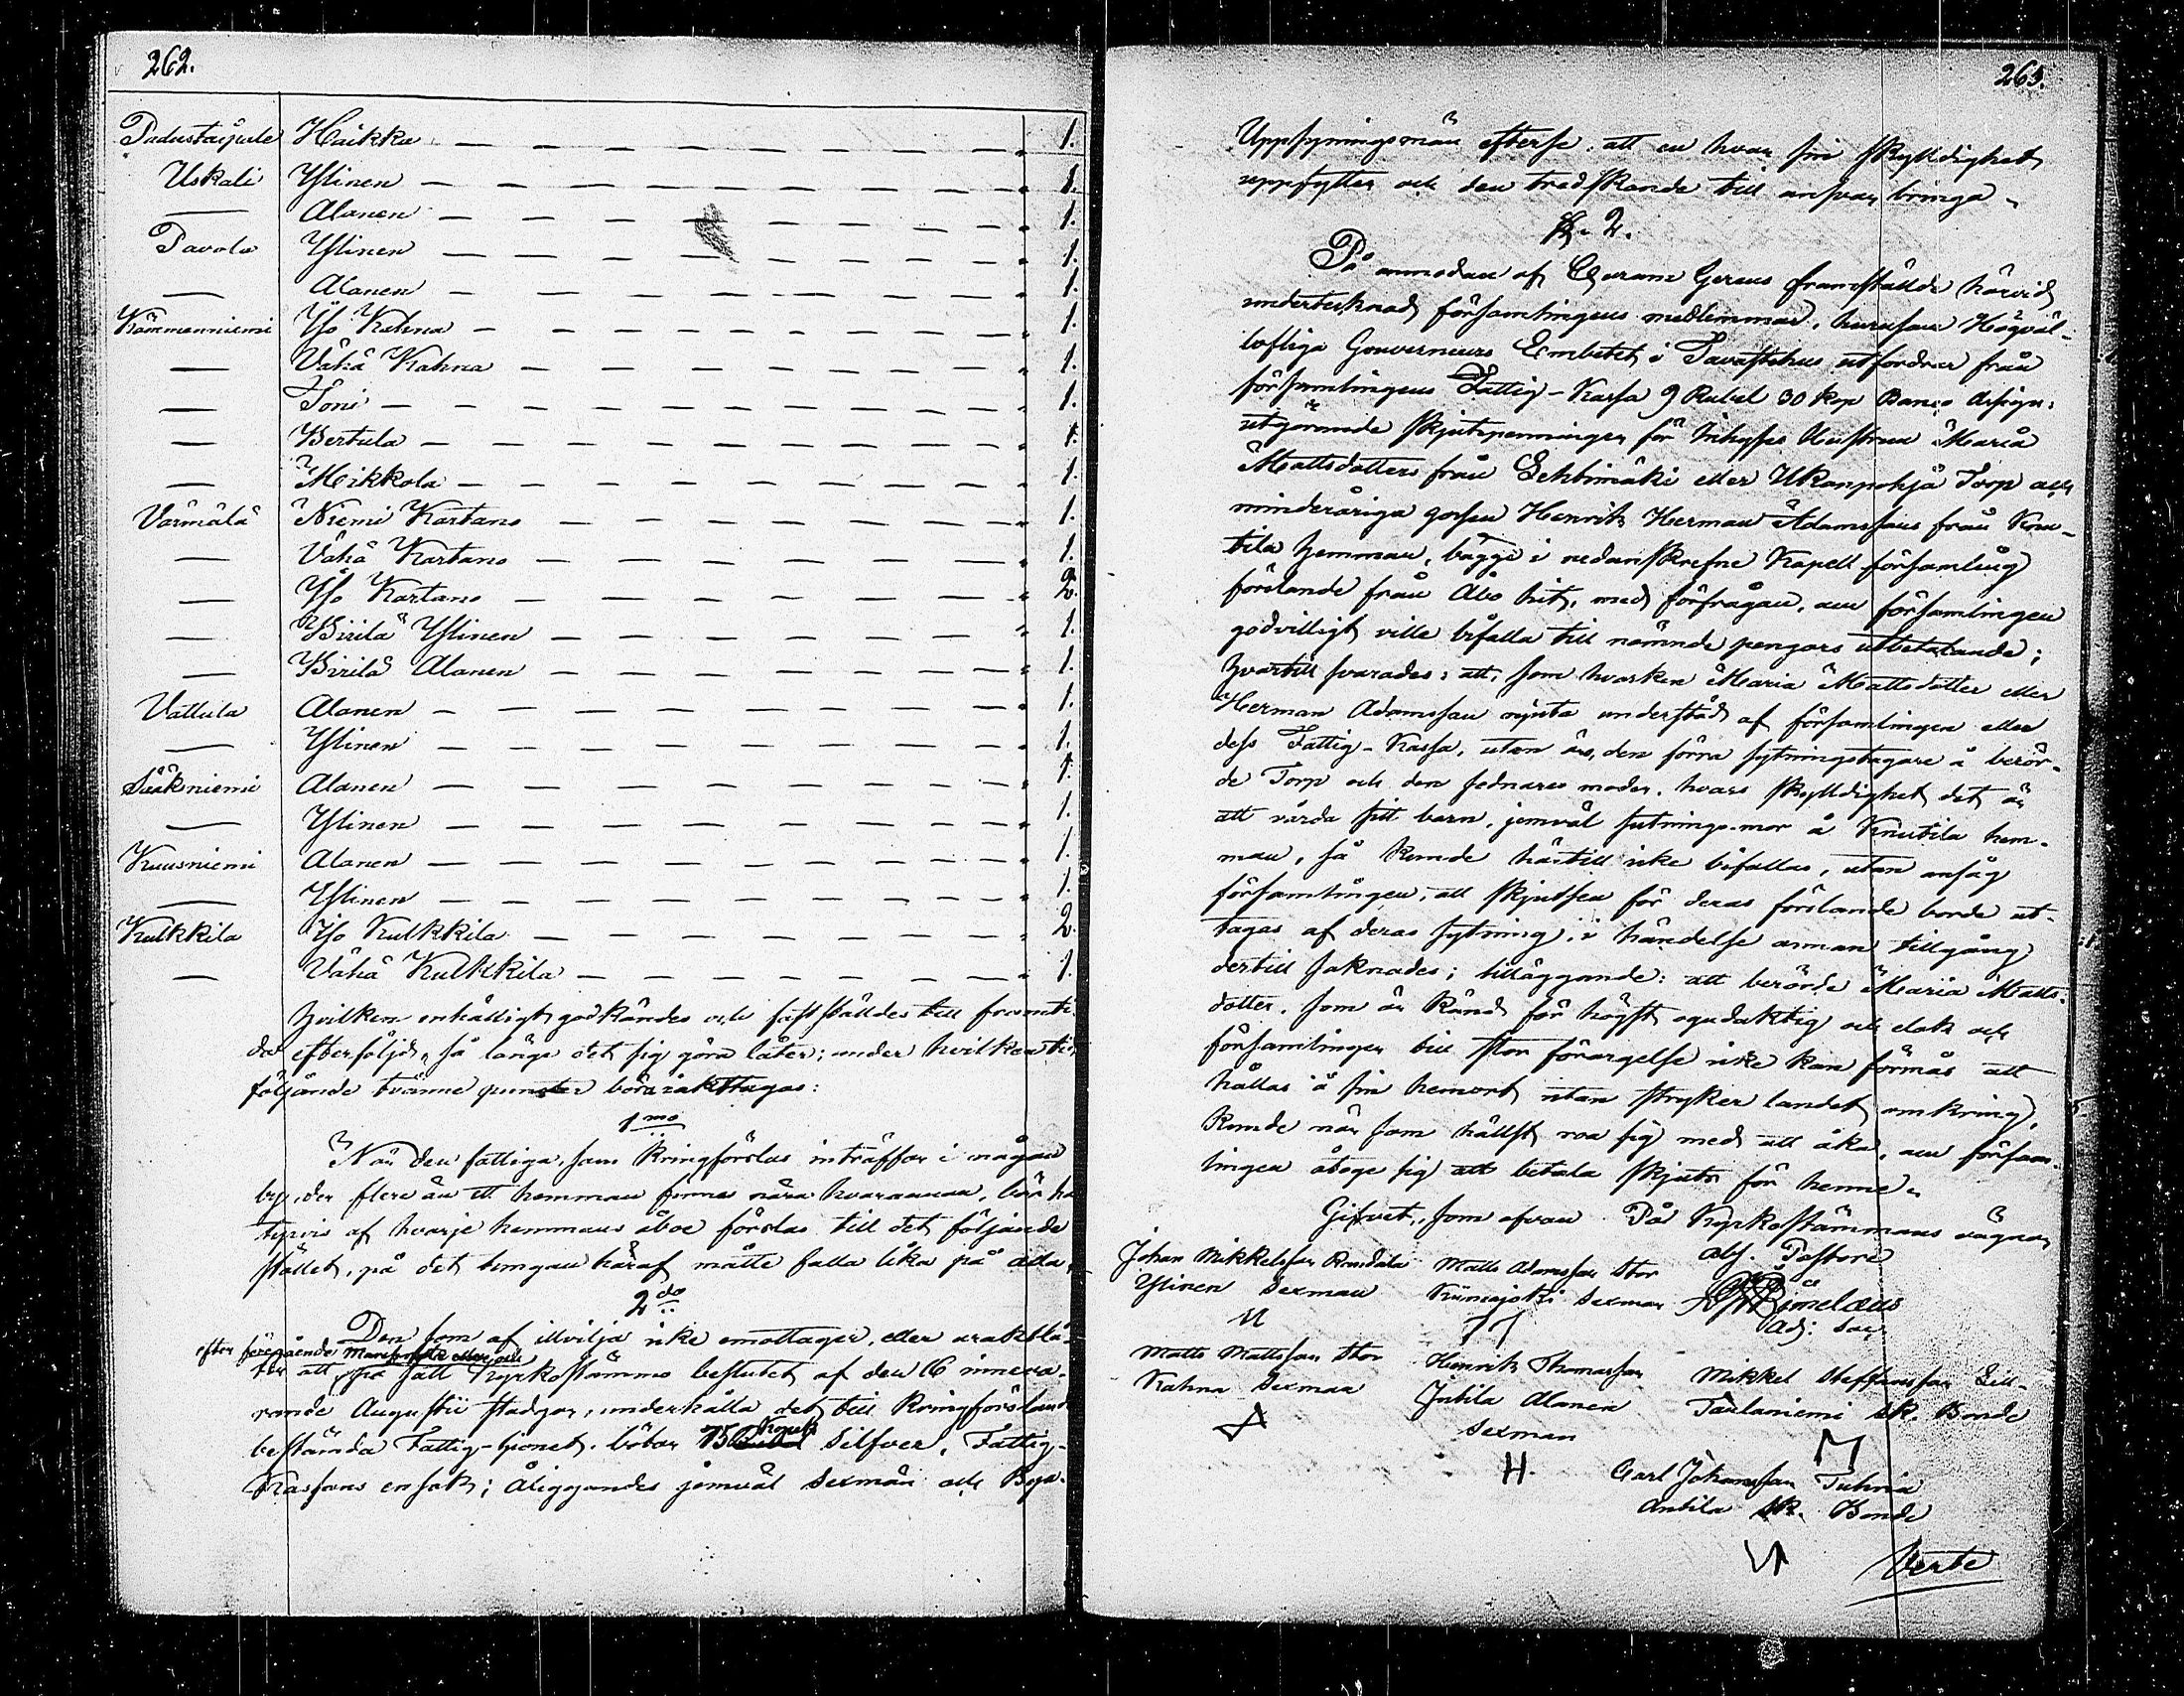 262.
Padustaipale Heikku — — — — — — — — „ 1.
Uskali Ylinen — — — — — — — — „ 1.
— Alanen — — — — — — — — „ 1.
Pavola Ylinen — — — — — — — — „ 1.
— Alanen — — — — — — — — „ 1.
Kämmenniemi Iso Kahna — — — — — — — — „ 1.
— Vähä Kahna — — — — — — — „ 1.
— Toni — — — — — — — — „ 1.
— Bertula — — — — — — — — „ 1.
— Mikkola — — — — — — — — „ 1.
Värmälä Niemi Kartano — — — — — — — „ 1.
— Vähä Kartano — — — — — — — „ 1.
— Iso Kartano — — — — — — — „ 2.
— Birilä Ylinen — — — — — — — „ 1.
— Birilä Alanen — — — — — — — „ 1.
Vattula Alanen — — — — — — — — „ 1.
— Ylinen — — — — — — — — „ 1.
Sääksniemi Alanen — — — — — — — — „ 1.
— Ylinen — — — — — — — — „ 1.
Kuusniemi Alanen — — — — — — — — „ 1.
— Ylinen — — — — — — — — „ 1.
Kulkkila Iso Kulkkila — — — — — — — „ 2.
— Vähä Kulkkila — — — — — — — „ 1.
hvilken enhälligt godkändes och fastställdes till framti-
da efterföljd, så länge det sig göra låter; under hvilken tid
följande tvänne punkter böra iakttagas:
1mo
När den fattiga, som kringförslas inträffar i någon
by, der flere än ett hemman finnes nära hvarannan, bör
typvis af hvarje hemmans åboe förslas till det följande
stället, på det tungan häraf måtte falla lika på alla.
2do
Den som af illvilja icke emottager, eller uraktlå-
efter föregående
ter att på sätt Kyrkostämmo beslutet af den 16 inneva-
rande Augustii stadgar, underhålla det till kringförslande
bestämda Fattig-hjonet, böter 75 Kopek Silfver, Fattig-
Kassans ensak; åliggandes jemväl Sexmän och Bya-
263.
Uppsyningsmän efterse, att en hvar sin skyldighet
uppfyller och den tredskande till ansvar bringa.
§. 2.
På anmodan af Herans Gereus framställde härvid
undertecknad församlingens medlemmar, hurusom Högväl-
lofliga Gouverneurs Embetet i Tavastehus utfordrar från
församlingens Fattig-Kassa 9 Rubel 30 kop Banco Assign:
utgörande skjutspenningar för Inhyses Hustrun Maria
Mattsdotters från Lehtimäki eller Ukanpohja Torp och
minderåriga gossen Henrik Herman Adamssons från Knu-
tila hemman, bägge i nedanskrefne Kapell församling
förslande från Åbo hit, med förfrågan, om församlingen
godvilligt ville bifalla till nämnde pengars utbetalande;
hvartill svarades: att, som hvarken Maria Mattsdotter eller
Herman Adamsson njuta understöd af församlingen eller
dess Fattig-Kassa, utan är, den förra sytningstagare å berör-
de Torp och den sednares moder, hvars skyldighet det är
att vårda sitt barn, jemväl sytnings-mor å Knutila hem-
man, så kunde härtill icke bifallas, utan ansåg
församlingen, att skjutsen för deras förslande borde ut-
tagas af deras sytning, i händelse annan tillgång
dertill saknades; tilläggande: att berörde Maria Matts-
dotter, som är känd för högst ogudaktig och elak och
församlingen till stor förargelse icke kan förmås att
hållas å sin hemort utan stryker landet omkring,
kunde när som hällst roa sig med att åka, om försam-
lingen åtoge sig att betala skjuts för henne.
Gifvet, som ofvan På Kyrkostämmans vägnar
abs. Pastore
Adj. Sac.
Johan Mikkelsson Ruudala Matts Adamsson Stor
Ylinen Sexman Kiimajoki Sexman
Matts Mattsson Stor Henrik Thomasson Mikkel Steffansson Lill-
Kahna Sexman Jutila Alanen Taulaniemi sk. Bonde
Sexman
H. Carl Johansson Tuhria
Antila sk. Bonde
Verte